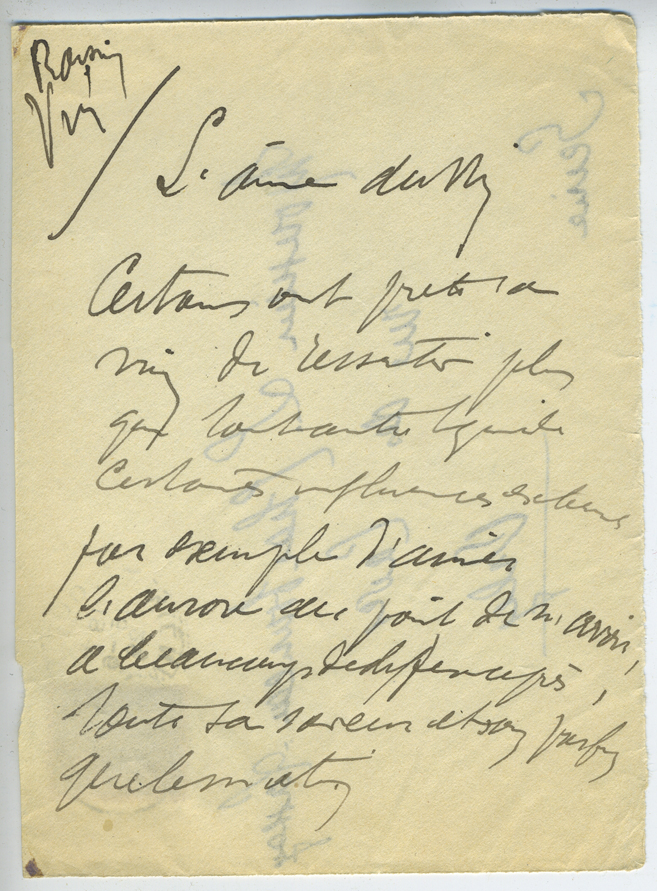 Raisin
Vin
L'âme du Vin
Certains ont prêté au
vin de ressentir plus
que tout autre liquide
certaines influences extérieures
par exemple d'aimer
l'aurore au point de n'avoir,
à beaucoup de différence près,
toute sa saveur et son parfum
que le matin